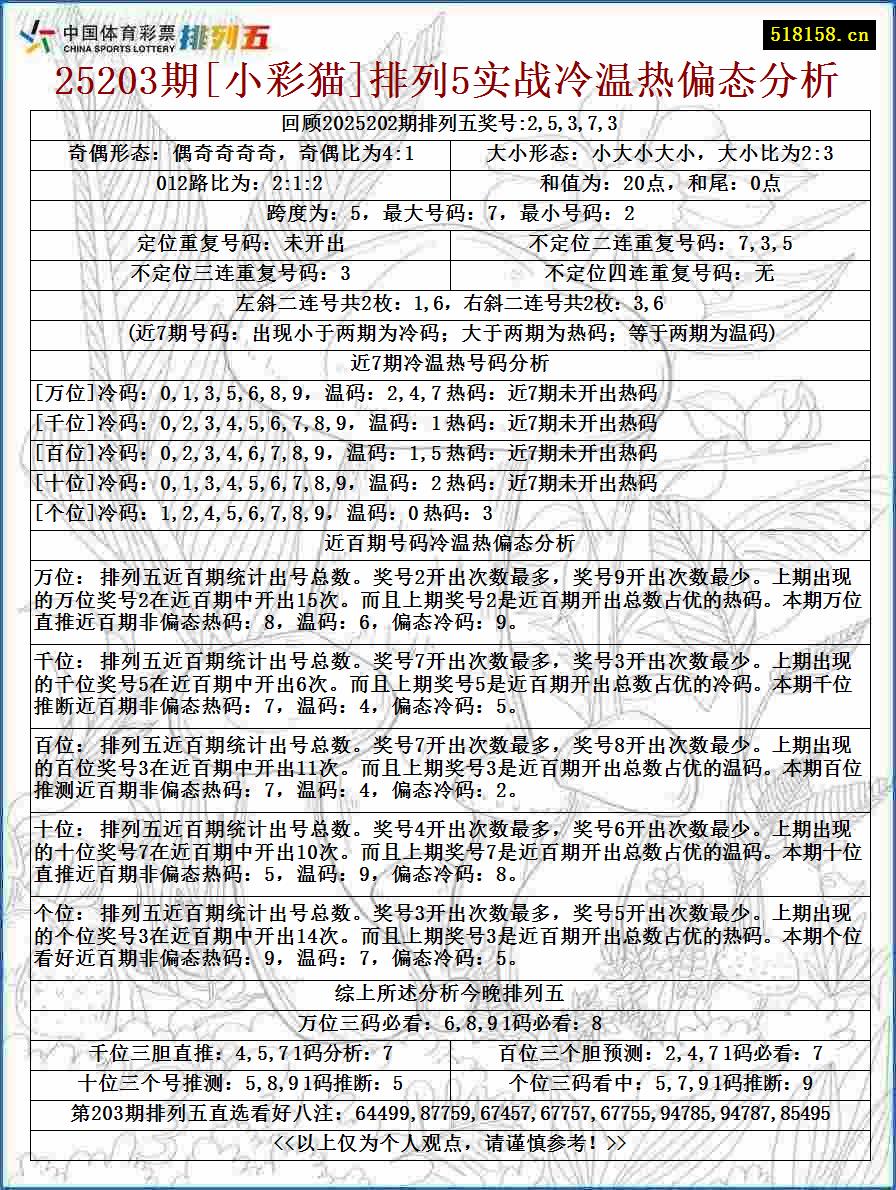 中国体育彩票
CHINA SPORTS LOTTERY
排列五
518158.cn
25203期[小彩猫]排列5实战冷温热偏态分析
回顾2025202期排列五奖号:2,5,3,7,3
奇偶形态：偶奇奇奇奇，奇偶比为4:1
大小形态：小大小大小，大小比为2:3
012路比为：2:1:2
和值为：20点，和尾：0点
跨度为：5，最大号码：7，最小号码：2
定位重复号码：未开出
不定位二连重复号码：7,3,5
不定位三连重复号码：3
不定位四连重复号码：无
左斜二连号共2枚：1,6，右斜二连号共2枚：3,6
(近7期号码：出现小于两期为冷码；大于两期为热码；等于两期为温码)
近7期冷温热号码分析
[万位]冷码：0,1,3,5,6,8,9，温码：2,4,7 热码：近7期未开出热码
[千位]冷码：0,2,3,4,5,6,7,8,9，温码：1 热码：近7期未开出热码
[百位]冷码：0,2,3,4,6,7,8,9，温码：1,5 热码：近7期未开出热码
[十位]冷码：0,1,3,4,5,6,7,8,9，温码：2 热码：近7期未开出热码
[个位]冷码：1,2,4,5,6,7,8,9，温码：0 热码：3
近百期号码冷温热偏态分析
万位： 排列五近百期统计出号总数。奖号2开出次数最多，奖号9开出次数最少。上期出现
的万位奖号2在近百期中开出15次。而且上期奖号2是近百期开出总数占优的热码。本期万位
直推近百期非偏态热码：8，温码：6，偏态冷码：9。
千位： 排列五近百期统计出号总数。奖号7开出次数最多，奖号3开出次数最少。上期出现
的千位奖号5在近百期中开出6次。而且上期奖号5是近百期开出总数占优的冷码。本期千位
推断近百期非偏态热码：7，温码：4，偏态冷码：5。
百位： 排列五近百期统计出号总数。奖号7开出次数最多，奖号8开出次数最少。上期出现
的百位奖号3在近百期中开出11次。而且上期奖号3是近百期开出总数占优的温码。本期百位
推测近百期非偏态热码：7，温码：4，偏态冷码：2。
十位： 排列五近百期统计出号总数。奖号4开出次数最多，奖号6开出次数最少。上期出现
的十位奖号7在近百期中开出10次。而且上期奖号7是近百期开出总数占优的温码。本期十位
直推近百期非偏态热码：5，温码：9，偏态冷码：8。
个位： 排列五近百期统计出号总数。奖号3开出次数最多，奖号5开出次数最少。上期出现
的个位奖号3在近百期中开出14次。而且上期奖号3是近百期开出总数占优的热码。本期个位
看好近百期非偏态热码：9，温码：7，偏态冷码：5。
综上所述分析今晚排列五
万位三码必看：6,8,9 1码必看：8
千位三胆直推：4,5,7 1码分析：7
百位三个胆预测：2,4,7 1码必看：7
十位三个号推测：5,8,9 1码推断：5
个位三码看中：5,7,9 1码推断：9
第203期排列五直选看好八注：64499,87759,67457,67757,67755,94785,94787,85495
<<以上仅为个人观点，请谨慎参考！>>